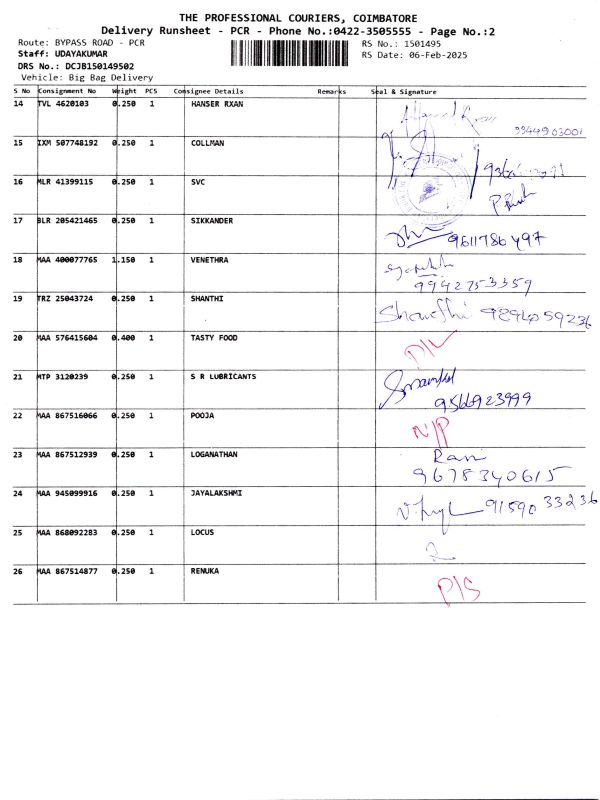 THE PROFESSIONAL COURIERS, COIMBATORE
Delivery Runsheet - PCR - Phone No.:0422-3505555 - Page No.:2
Route: BYPASS ROAD - PCR RS No.: 1501495
Staff: UDAYAKUMAR RS Date: 06-Feb-2025
DRS No.: DCJB150149502
Vehicle: Big Bag Delivery
S No Consignment No Weight PCS Consignee Details Remarks Seal & Signature
14 TVL 4620103 0.250 1 HANSER RXAN
9344903001
15 IXM 507748192 0.250 1 COLLMAN
16 MLR 41399115 0.250 1 SVC
17 BLR 205421465 0.250 1 SIKKANDER
9611786497
18 MAA 400077765 1.150 1 VENETHRA
9942753359
19 TRZ 25043724 0.250 1 SHANTHI
Shanthi
20 MAA 576415604 0.400 1 TASTY FOOD
D/L
21 MTP 3120239 0.250 1 S R LUBRICANTS
9566923999
22 MAA 867516066 0.250 1 POOJA
N/P
23 MAA 867512939 0.250 1 LOGANATHAN
Rani
9678340615
24 MAA 945099916 0.250 1 JAYALAKSHMI
9159033236
25 MAA 868092283 0.250 1 LOCUS
26 MAA 867514877 0.250 1 RENUKA
P/S